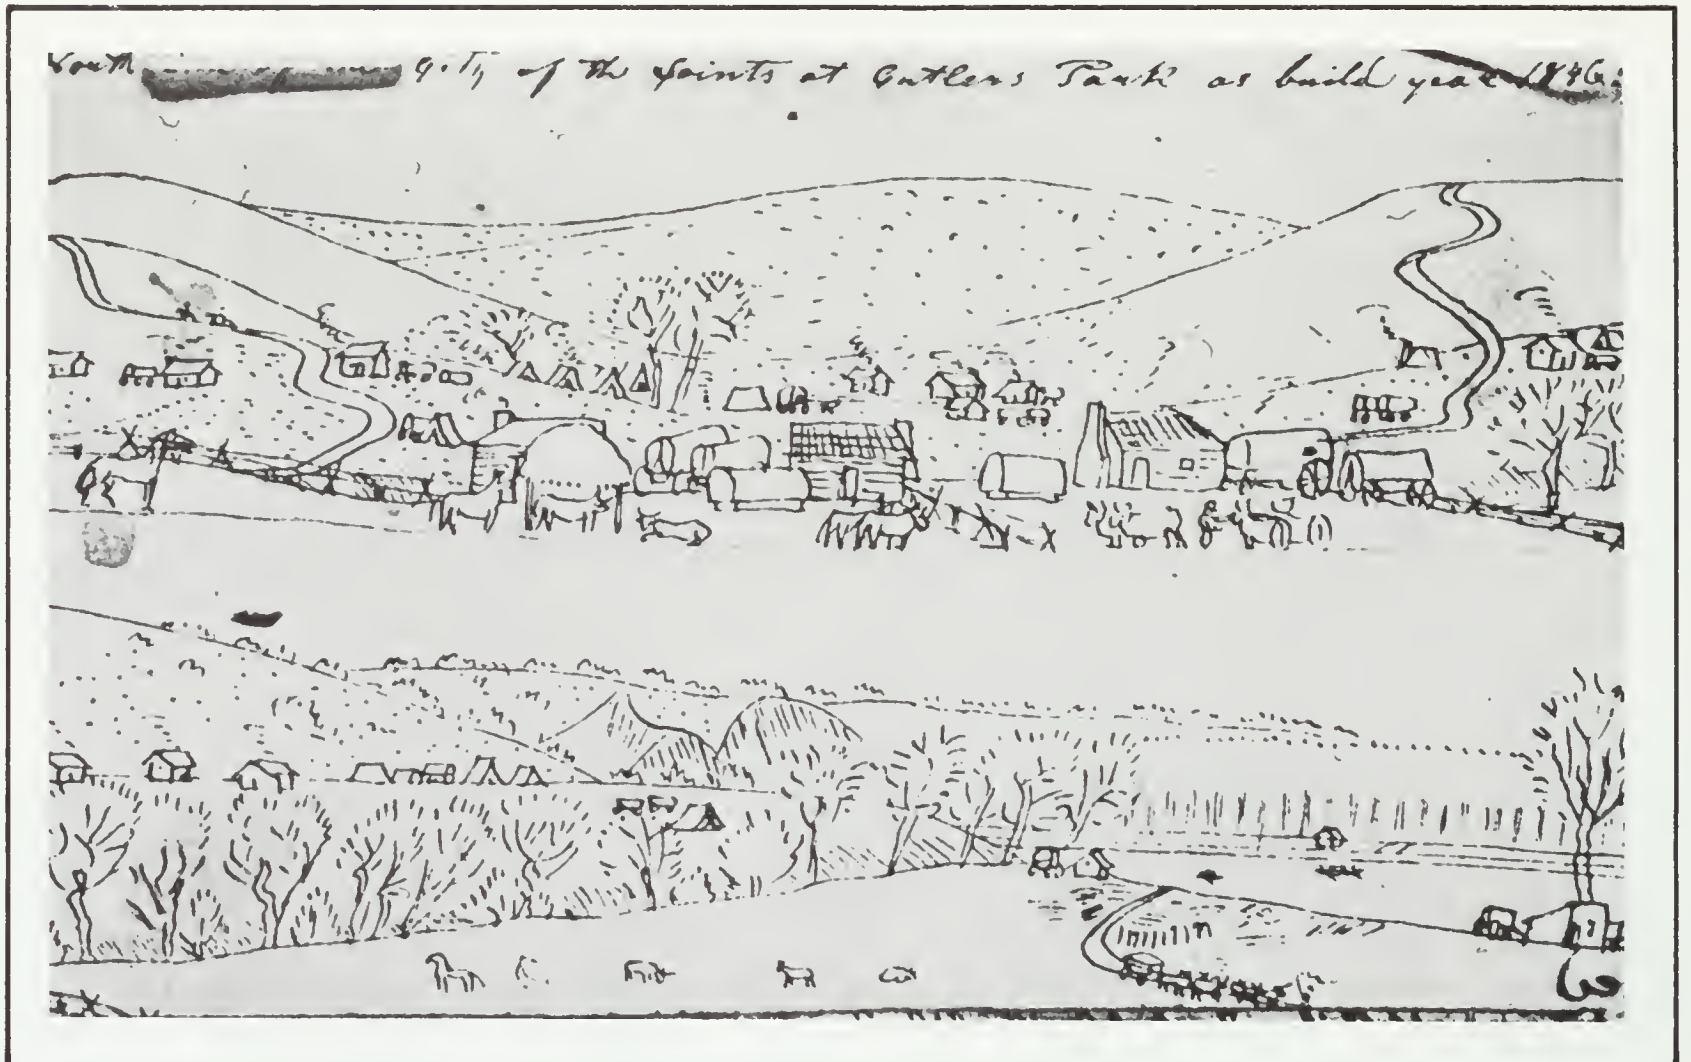 South City of the Saints at Cutlers Park as build year 1846